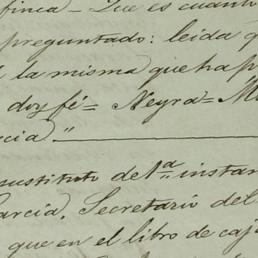 finca – Que es cuanto
preguntado: leida q
la misma que ha p
doy fé = Neyra = M
rcia." 
sustituto de 1ª instan
García, Secretario del
que en el libro de caj